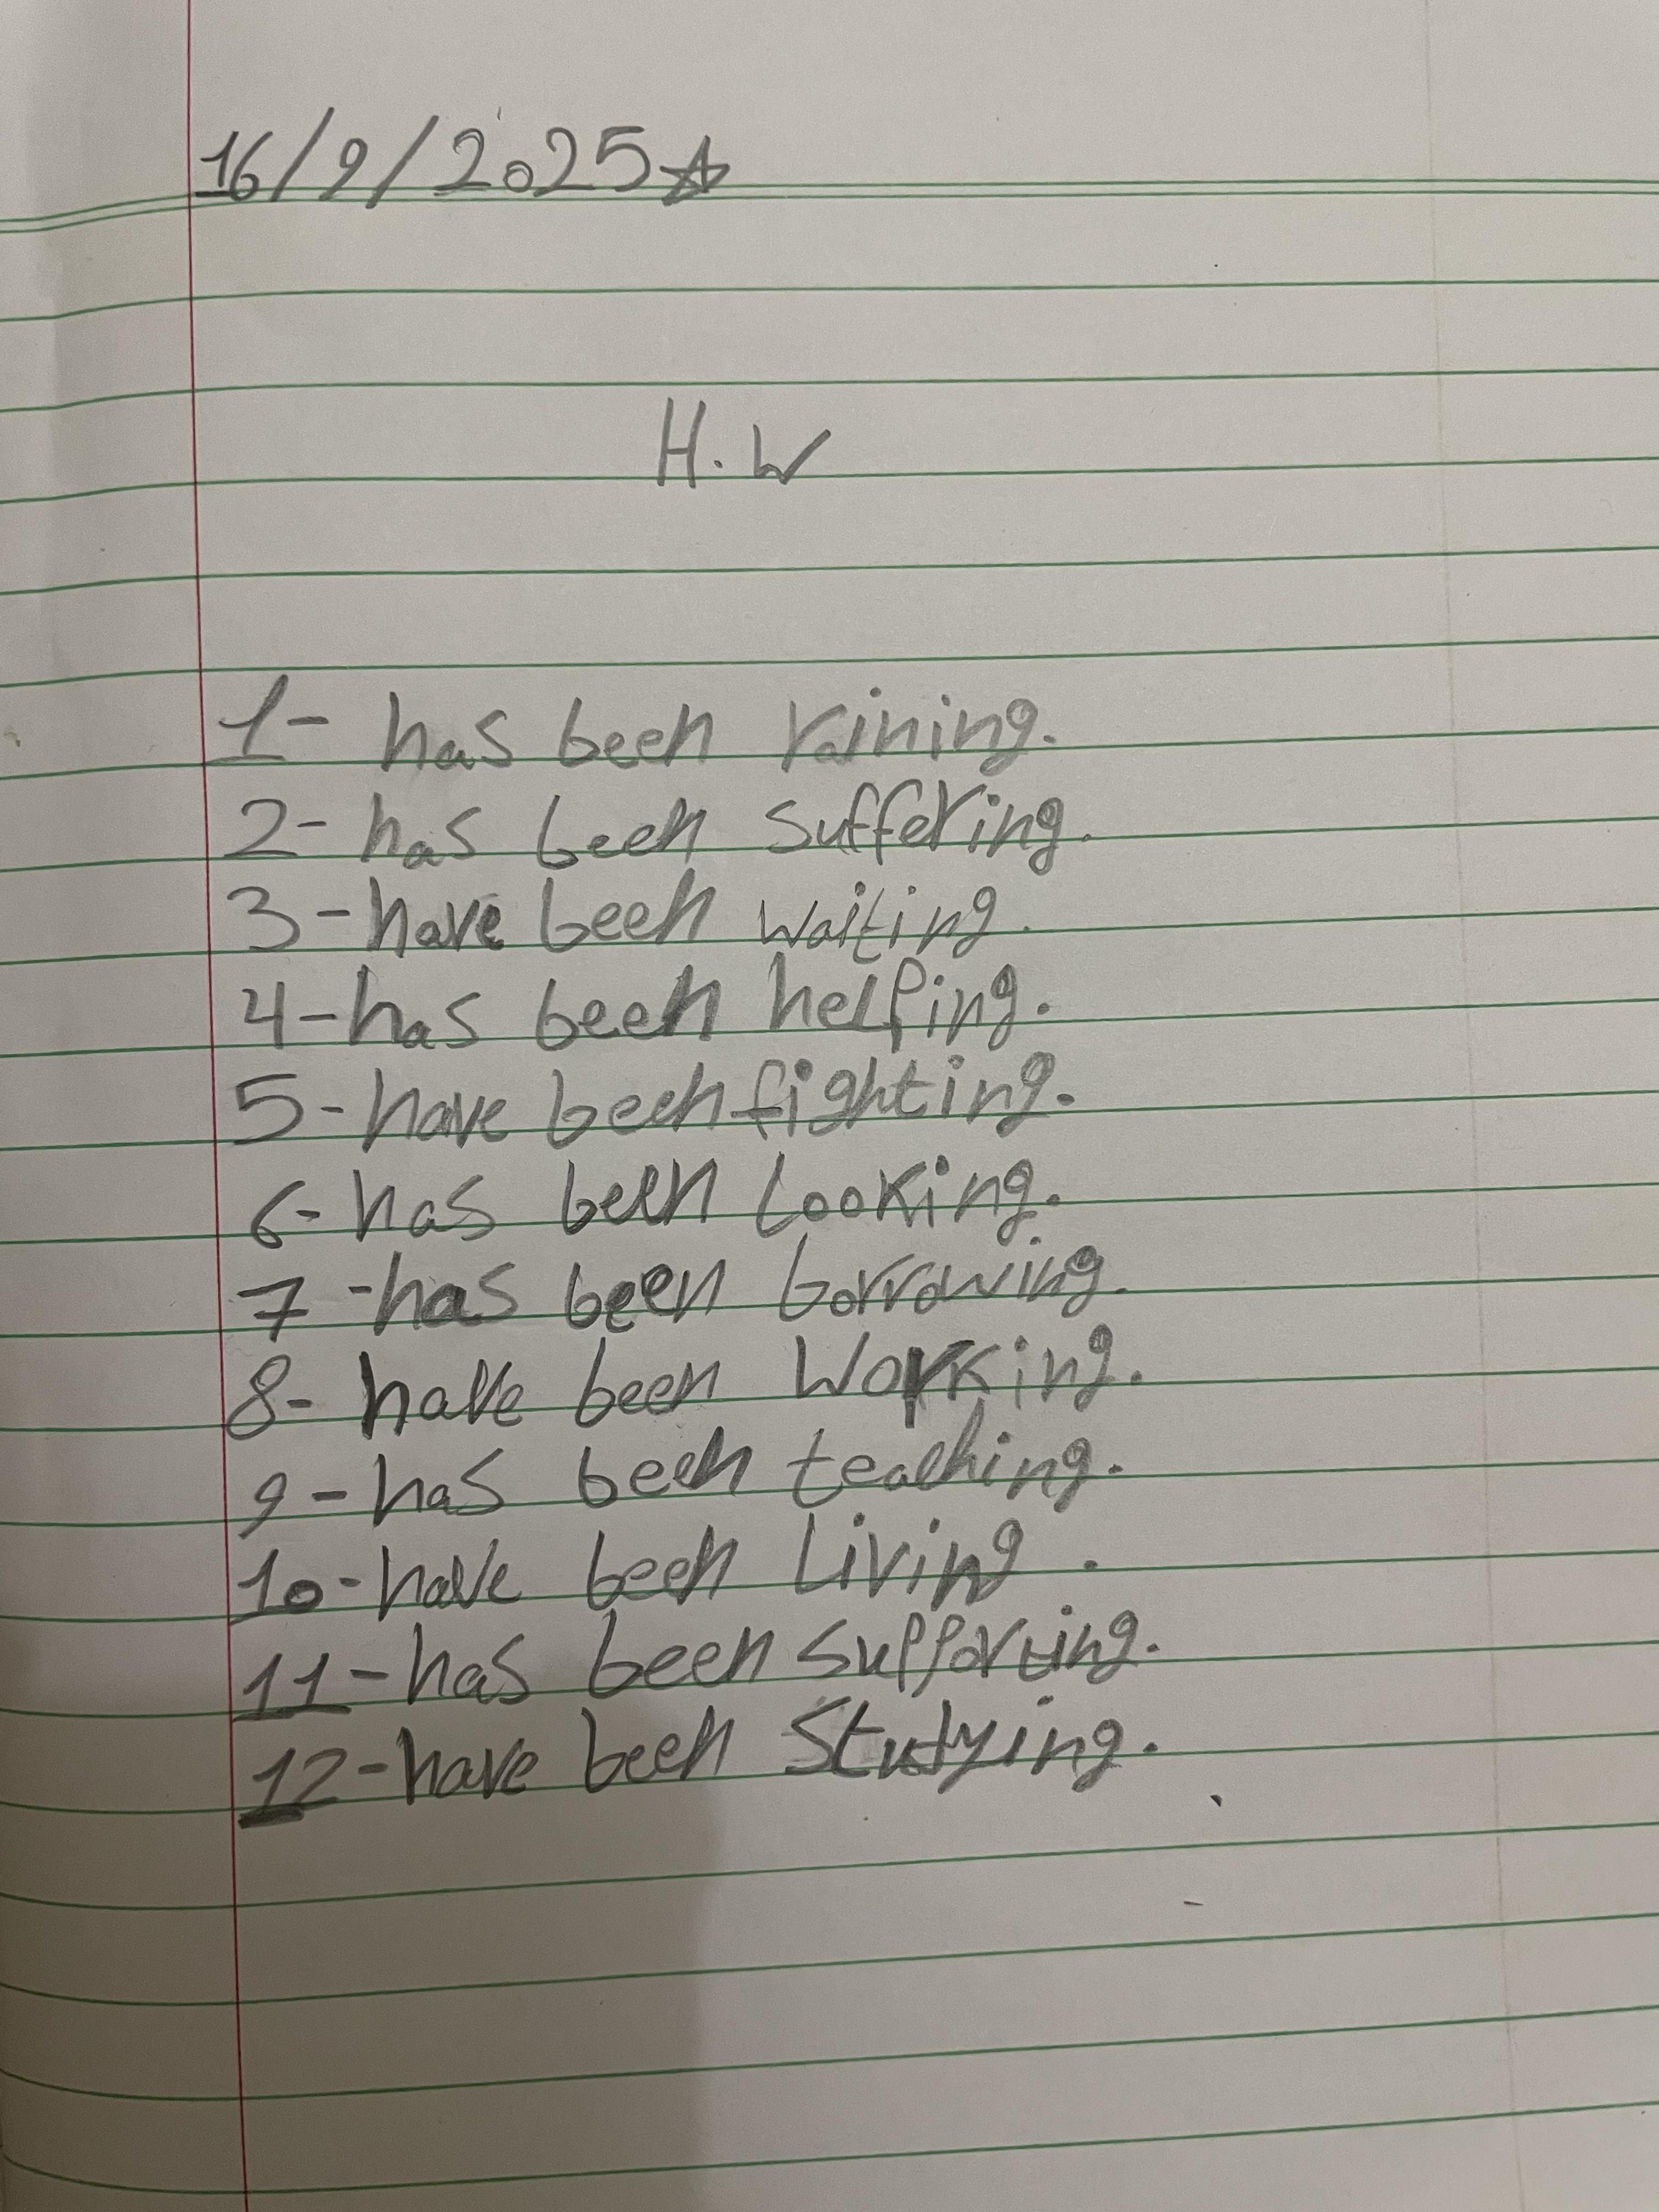 16/9/2025☆
H.W
1- has been raining.
2- has been suffering.
3- have been waiting.
4- has been helping.
5- have been fighting.
6- has been Looking.
7- has been borrowing.
8- have been Working.
9- has been teaching.
10- have been Living.
11- has been supporting.
12- have been Studying.